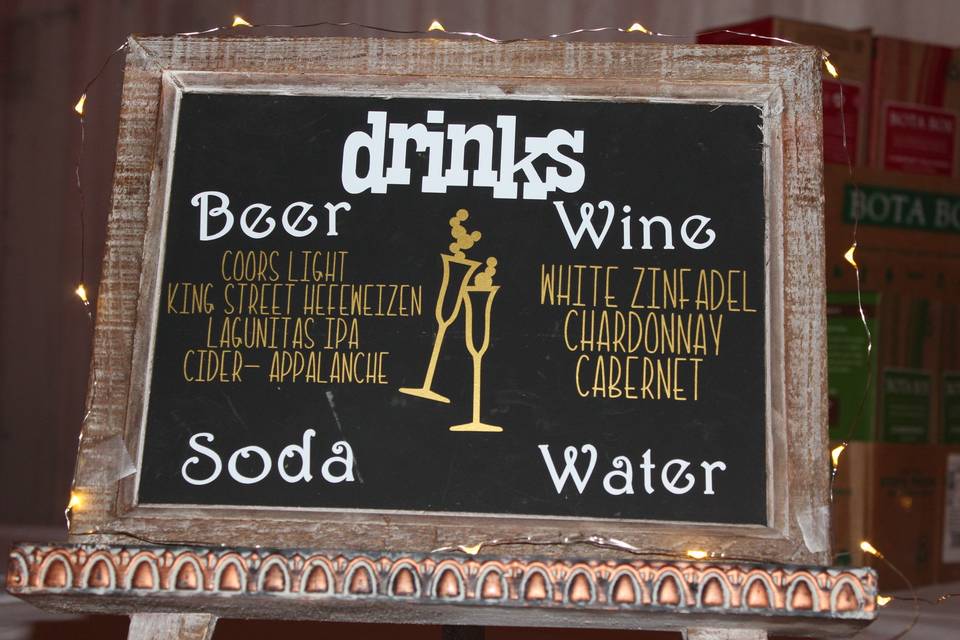 drinks
Beer
COORS LIGHT
KING STREET HEFEWEIZEN
LAGUNITAS IPA
CIDER- APPALANCHE
Wine
WHITE ZINFADEL
CHARDONNAY
CABERNET
Soda
Water
BOTA BOX
BOTA BO